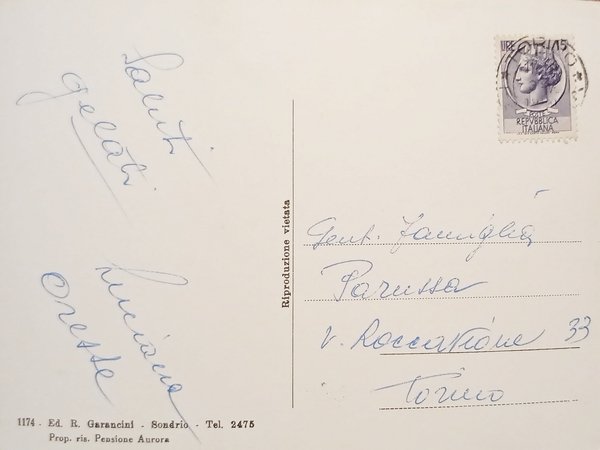 Saluti
gelati
Luciana
Oreste
1174 - Ed. R. Garancini - Sondrio - Tel. 2475
Prop. ris. Pensione Aurora
Riproduzione vietata
LIRE 15
TORINO
POSTE
REPVBBLICA
ITALIANA
Gent. Famiglia
Parussa
V. Roccavione 33
Torino